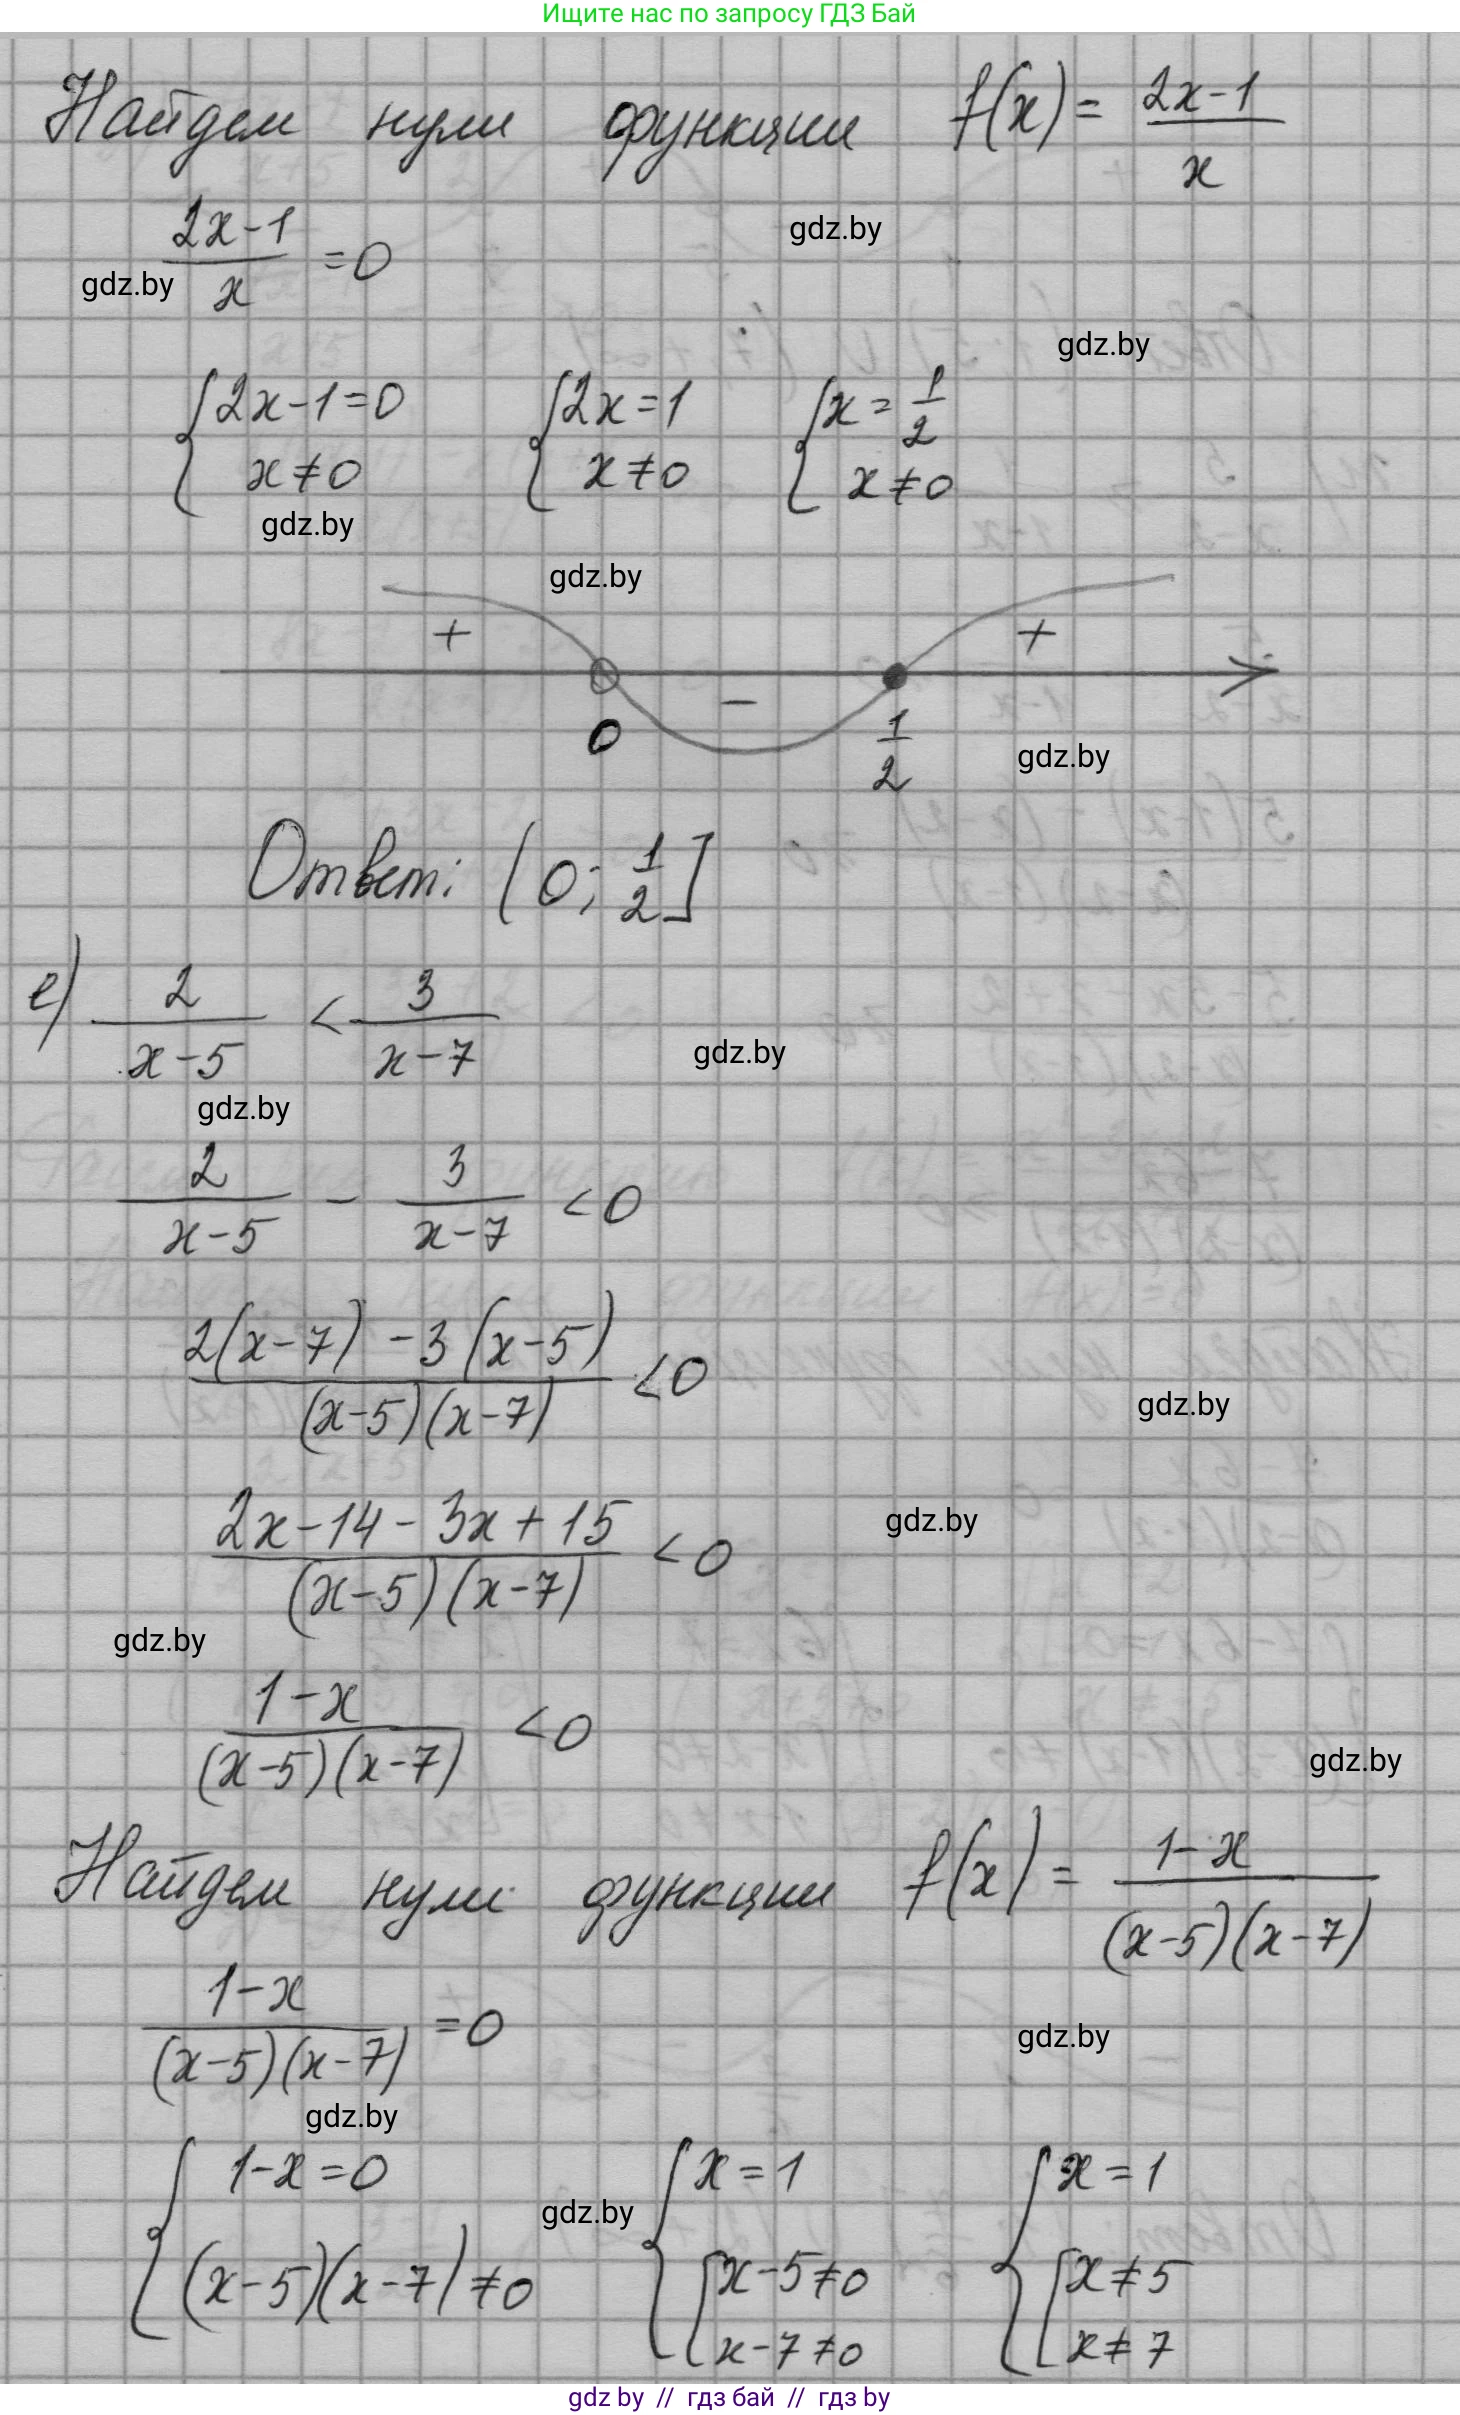 Ищите нас по запросу ГДЗ Бай
Найдем нули функции f(x) = (2x-1)/x
gdz.by
(2x-1)/x = 0
gdz.by
gdz.by
{2x-1=0 {2x=1 {x=1/2
x≠0 x≠0 x≠0
gdz.by
gdz.by
+ - +
0 1/2
gdz.by
Ответ: (0; 1/2]
е) 2/(x-5) < 3/(x-7)
gdz.by
gdz.by
2/(x-5) - 3/(x-7) < 0
(2(x-7) - 3(x-5))/((x-5)(x-7)) < 0
gdz.by
(2x-14-3x+15)/((x-5)(x-7)) < 0
gdz.by
gdz.by
(1-x)/((x-5)(x-7)) < 0
gdz.by
Найдем нули функции f(x) = (1-x)/((x-5)(x-7))
(1-x)/((x-5)(x-7)) = 0
gdz.by
gdz.by
{1-x=0 {x=1 {x=1
gdz.by
(x-5)(x-7)≠0 [x-5≠0 [x≠5
x-7≠0 x≠7
gdz by // гдз бай // гдз by